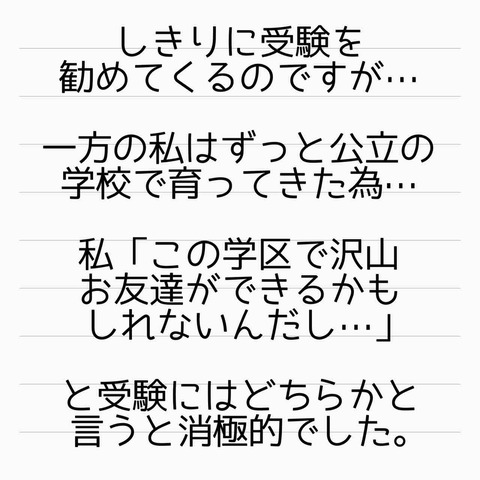 しきりに受験を
勧めてくるのですが…
一方の私はずっと公立の
学校で育ってきた為…
私「この学区で沢山
お友達ができるかも
しれないんだし…」
と受験にはどちらかと
言うと消極的でした。